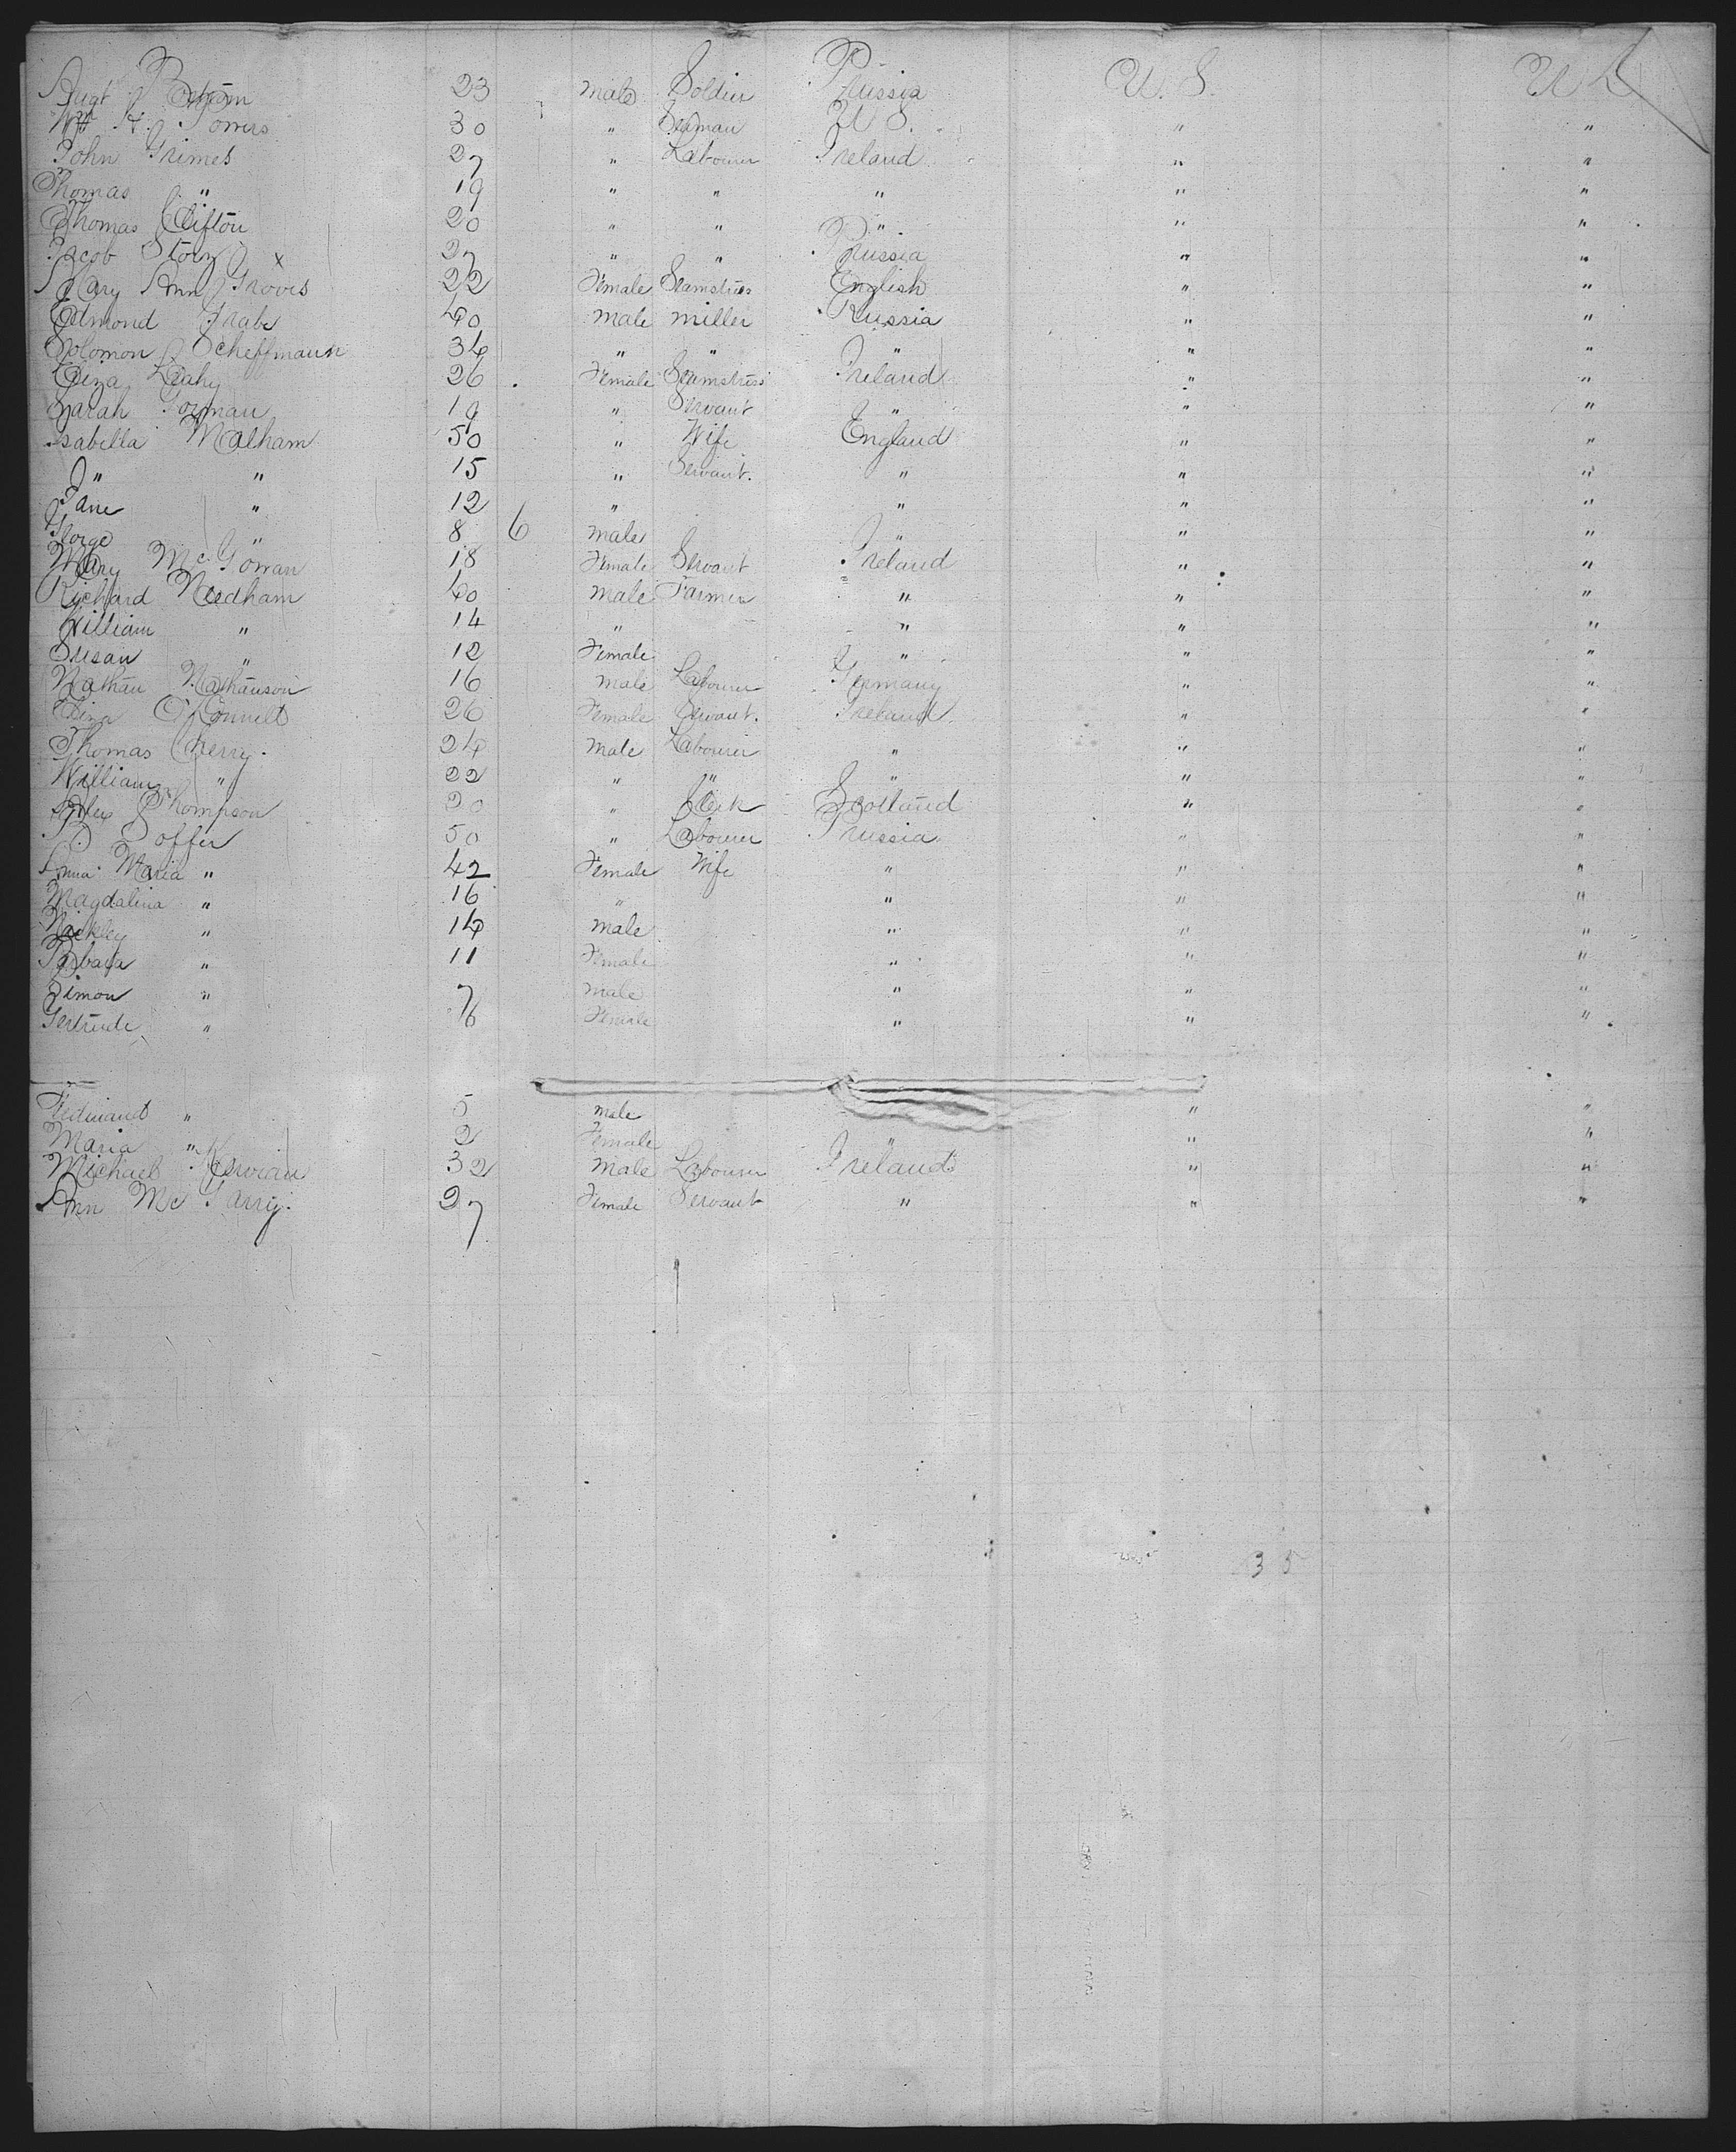 Augt 23 male Soldier Prussia U. S. U S
Wm H. Powers 30 " Seaman U S. " "
John Grimes 27 " Labourer Ireland " "
Thomas " 19 " " " " "
Thomas Clifton 20 " " " " "
Jacob Storz x 27 " " Prussia " "
Mary Ann Groves 22 Female Seamstress English " "
Edmond Grabe 40 male miller Russia " "
Solomon Scheffmann 34 " " " " "
Eliza Leahy 26 Female Seamstress Ireland " "
Sarah Gorman 19 " Servant " " "
Isabella Malham 50 " Wife England " "
" " 15 " Servant. " " "
Jane " 12 " " " "
George " 8 6 male " " "
Mary McGowan 18 Female Servant Ireland " "
Richard Needham 40 male Farmer " " "
William " 14 " " " "
Susan " 12 Female " " "
Nathan Nathanson 16 male Labourer Germany " "
Eliza O'Connell 26 Female Servant. Ireland " "
Thomas Cherry. 24 male Labourer " " "
William " 22 " " " " "
Alex Thompson 20 " Clerk Scotland " "
P. Soffer 50 " Labourer Prussia " "
Anna Maria " 42 Female Wife " " "
Magdalina " 16 " " " "
Nickley " 14 male " " "
Barbara " 11 Female " " "
Simon " 7 male " " "
Gertrude " 6 Female " " "
Ferdinand " 5 male " "
Maria " 2 Female " "
Michael Kerwan 32 male Labourer Ireland " "
Ann Mc Garry. 27 Female Servant " " "
35